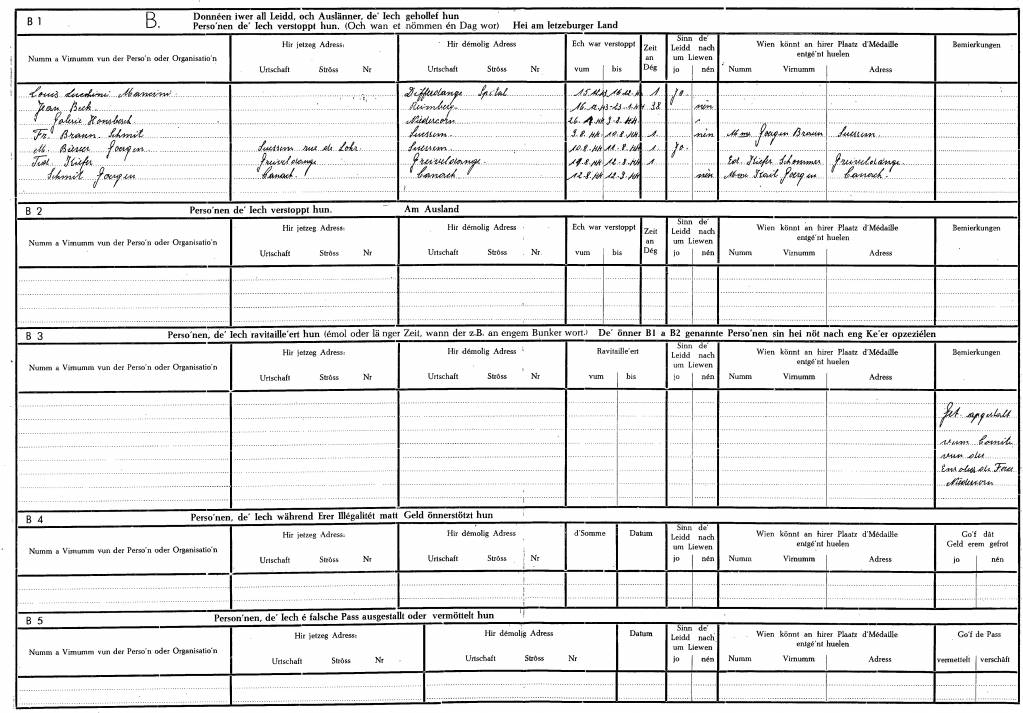 B 1
B.
Donnéen iwer all Leidd, och Auslänner, de' Iech gehollef hun
Perso'nen de' Iech verstoppt hun. (Och wan et nömmen én Dag wor) Hei am letzeburger Land
Numm a Virnumm vun der Perso'n oder Organisatio'n
Hir jetzeg Adress:
Urtschaft Ströss Nr
Hir démolig Adress
Urtschaft Ströss Nr
Ech war verstoppt
vum bis
Zeit an Dég
Sinn de' Leidd nach um Liewen
jo nén
Wien könnt an hirer Plaatz d'Médaille entgé'nt huelen
Numm Virnumm Adress
Bemierkungen
Louis Lucchini Mancini Differdange Spidal 1 Jo.
Jean Beck 38 nén
Galerie Honsbesch Niedercorn
Fr. Braun. Schmit Suessem. 3.8.44 10.8.44 1. nén Mme Joergen Braun Suessem.
M. Bierer Joergen Suessem rue de Lohr. Suessem. 10.8.44 11.8.44 1. Jo.
Kiefer Greiveldange Greiveldange. 12.8.44 1 Ed. Kiefer Schommer Greiveldange.
Schmit Joergen Canach. Canach. 12.8.44 nén Mme Joergen Canach.
B 2
Perso'nen de' Iech verstoppt hun. Am Ausland
Numm a Virnumm vun der Perso'n oder Organisatio'n
Hir jetzeg Adress:
Urtschaft Ströss Nr
Hir démolig Adress
Urtschaft Ströss Nr
Ech war verstoppt
vum bis
Zeit an Dég
Sinn de' Leidd nach um Liewen
jo nén
Wien könnt an hirer Plaatz d'Médaille entgé'nt huelen
Numm Virnumm Adress
Bemierkungen
B 3
Perso'nen, de' Iech ravitaille'ert hun (émol oder lä nger Zeit, wann der z.B. an engem Bunker wort.) De' önner B1 a B2 genannte Perso'nen sin hei nöt nach eng Ke'er opzeziélen
Numm a Virnumm vun der Perso'n oder Organisatio'n
Hir jetzeg Adress:
Urtschaft Ströss Nr
Hir démolig Adress
Urtschaft Ströss Nr
Ravitaille'ert
vum bis
Sinn de' Leidd nach um Liewen
jo nén
Wien könnt an hirer Plaatz d'Médaille entgé'nt huelen
Numm Virnumm Adress
Bemierkungen
opgestallt
vum Comité
vun den
Enrôlés de Force
Niedercorn
B 4
Perso'nen, de' Iech während Erer Illégalitét matt Geld önnerstötzt hun
Numm a Virnumm vun der Perso'n oder Organisatio'n
Hir jetzeg Adress:
Urtschaft Ströss Nr
Hir démolig Adress
Urtschaft Ströss Nr
d'Somme
Datum
Sinn de' Leidd nach um Liewen
jo nén
Wien könnt an hirer Plaatz d'Médaille entgé'nt huelen
Numm Virnumm Adress
Go'f dât Geld erem gefrot
jo nén
B 5
Person'nen, de' Iech é falsche Pass ausgestallt oder vermöttelt hun
Numm a Virnumm vun der Perso'n oder Organisatio'n
Hir jetzeg Adress:
Urtschaft Ströss Nr
Hir démolig Adress
Urtschaft Ströss Nr
Datum
Sinn de' Leidd nach um Liewen
jo nén
Wien könnt an hirer Plaatz d'Médaille entgé'nt huelen
Numm Virnumm Adress
Go'f de Pass
vermettelt verschäft